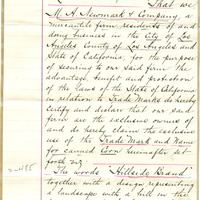 That we
M. A. Newmark & Company, a
mercantile firm residents of and
doing business in the City of Los
Angeles County of Los Angeles and
State of California, for the purpose
of securing to our said firm the
advantage, benefit and protection
of the laws of the State of California
in relation to Trade Marks do hereby
certify and declare that our said
firm are the exclusive owners of
and do hereby claim the exclusive
use of the Trade Mark and Name
for canned Corn hereinafter set
forth viz
The words "Hillside Brand"
together with a design representing
a landscape with a hill in the